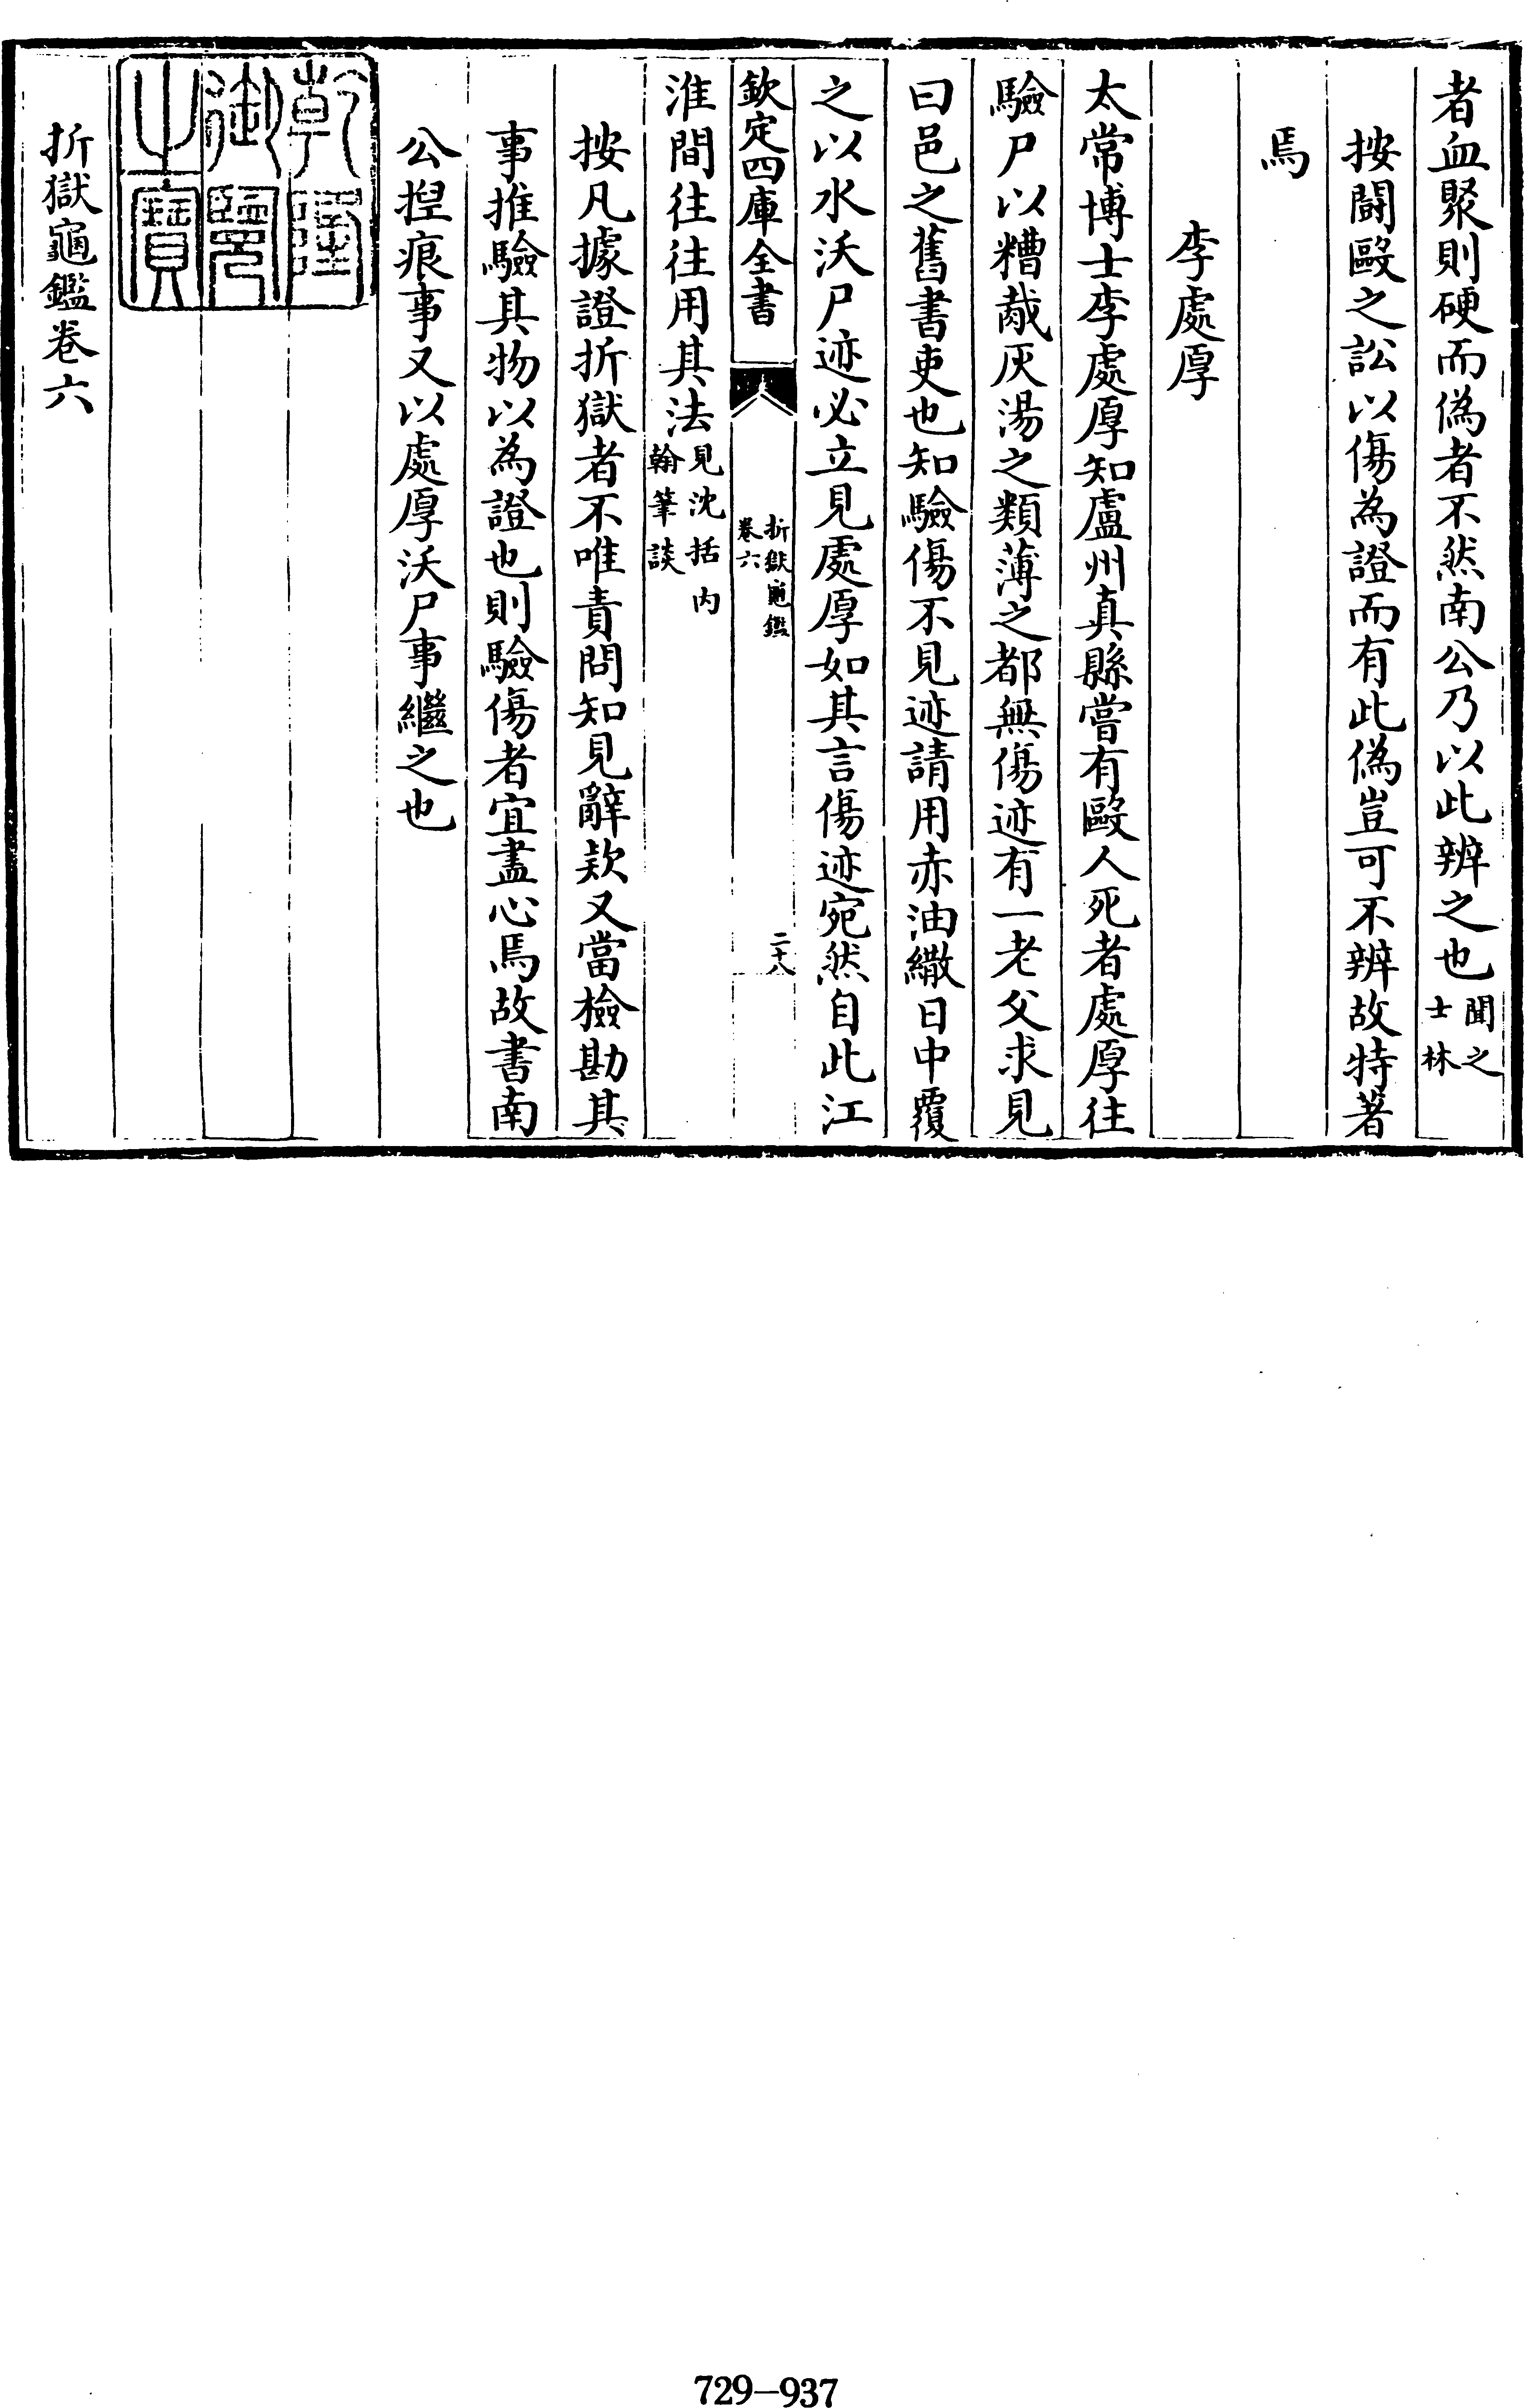 者血聚則硬而偽者不然南公乃以此辨之也聞之士林
按鬪毆之訟以傷為證而有此偽豈可不辨故特著
焉
李處厚
太常博士李處厚知盧州真縣嘗有毆人死者處厚往
驗尸以糟胾灰湯之類薄之都無傷迹有一老父求見
曰邑之舊書吏也知驗傷不見迹請用赤油繖日中覆
之以水沃尸迹必立見處厚如其言傷迹宛然自此江
欽定四庫全書
折獄龜鑑
卷六
二十八
淮間往往用其法見沈括內翰筆談
按凡據證折獄者不唯責問知見辭款又當檢勘其
事推驗其物以為證也則驗傷者宜盡心焉故書南
公揑痕事又以處厚沃尸事繼之也
乾隆御覽之寶
折獄龜鑑卷六
729-937